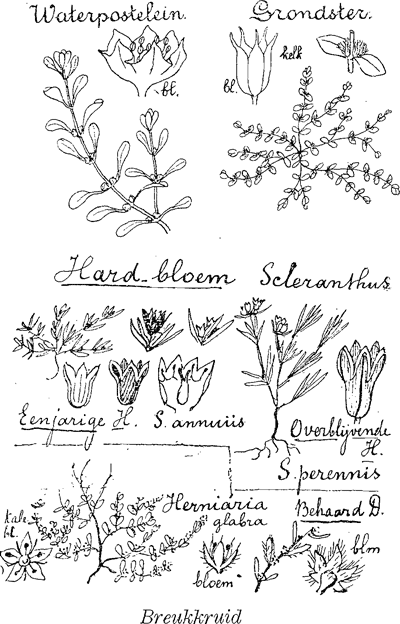 Waterpostelein. Grondster.
bl. kelk
bl.
Hard-bloem Scleranthus
Eenjarige H. S. annuus Overblijvende H.
S. perennis
Herniaria glabra Behaard B.
kale bl.
bloem blm
Breukkruid